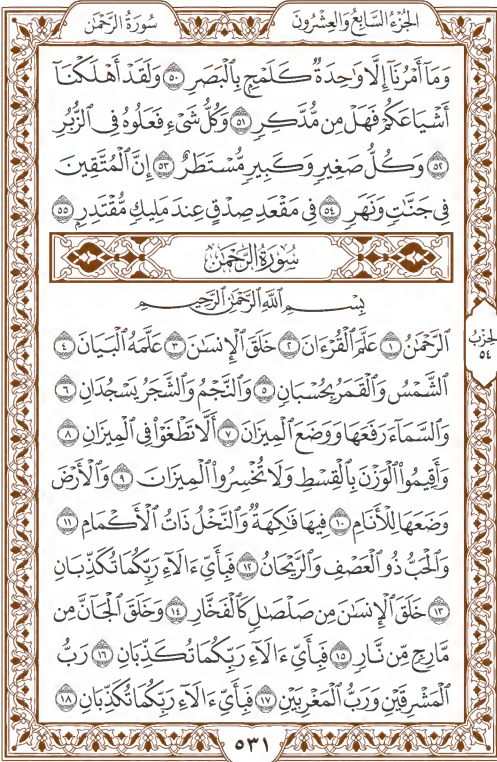 سُورَةُ الرَّحْمَٰن
الجُزْءُ السَّابِعُ وَالعِشْرُونَ
وَمَآ أَمْرُنَآ إِلَّا وَٰحِدَةٌ كَلَمْحٍۭ بِٱلْبَصَرِ ۝٥٠ وَلَقَدْ أَهْلَكْنَآ
أَشْيَاعَكُمْ فَهَلْ مِن مُّدَّكِرٍ ۝٥١ وَكُلُّ شَىْءٍ فَعَلُوهُ فِى ٱلزُّبُرِ
۝٥٢ وَكُلُّ صَغِيرٍ وَكَبِيرٍ مُّسْتَطَرٌ ۝٥٣ إِنَّ ٱلْمُتَّقِينَ
فِى جَنَّٰتٍ وَنَهَرٍ ۝٥٤ فِى مَقْعَدِ صِدْقٍ عِندَ مَلِيكٍ مُّقْتَدِرٍۭ ۝٥٥
سُورَةُ الرَّحْمَٰن
بِسْمِ ٱللَّهِ ٱلرَّحْمَٰنِ ٱلرَّحِيمِ
ٱلرَّحْمَٰنُ ۝١ عَلَّمَ ٱلْقُرْءَانَ ۝٢ خَلَقَ ٱلْإِنسَٰنَ ۝٣ عَلَّمَهُ ٱلْبَيَانَ ۝٤
ٱلشَّمْسُ وَٱلْقَمَرُ بِحُسْبَانٍ ۝٥ وَٱلنَّجْمُ وَٱلشَّجَرُ يَسْجُدَانِ ۝٦
وَٱلسَّمَآءَ رَفَعَهَا وَوَضَعَ ٱلْمِيزَانَ ۝٧ أَلَّا تَطْغَوْا۟ فِى ٱلْمِيزَانِ ۝٨
وَأَقِيمُوا۟ ٱلْوَزْنَ بِٱلْقِسْطِ وَلَا تُخْسِرُوا۟ ٱلْمِيزَانَ ۝٩ وَٱلْأَرْضَ
وَضَعَهَا لِلْأَنَامِ ۝١٠ فِيهَا فَٰكِهَةٌ وَٱلنَّخْلُ ذَاتُ ٱلْأَكْمَامِ ۝١١
وَٱلْحَبُّ ذُو ٱلْعَصْفِ وَٱلرَّيْحَانُ ۝١٢ فَبِأَىِّ ءَالَآءِ رَبِّكُمَا تُكَذِّبَانِ
۝١٣ خَلَقَ ٱلْإِنسَٰنَ مِن صَلْصَٰلٍ كَٱلْفَخَّارِ ۝١٤ وَخَلَقَ ٱلْجَآنَّ مِن
مَّارِجٍ مِّن نَّارٍ ۝١٥ فَبِأَىِّ ءَالَآءِ رَبِّكُمَا تُكَذِّبَانِ ۝١٦ رَبُّ
ٱلْمَشْرِقَيْنِ وَرَبُّ ٱلْمَغْرِبَيْنِ ۝١٧ فَبِأَىِّ ءَالَآءِ رَبِّكُمَا تُكَذِّبَانِ ۝١٨
الحِزْبُ
٥٤
٥٣١